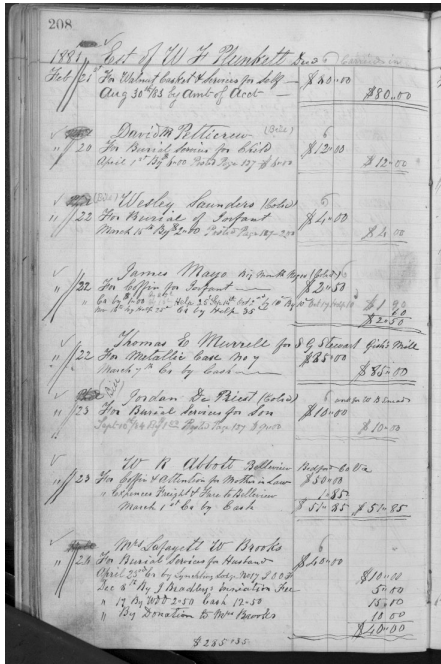 208
1881 Est of W F Plunkett Decd
Feb 21st For Walnut Casket & Services for Self — $80.00
Aug 30th 83 by Amt of Acct — $80.00
David M Petticrew (Bill)
" 20 For Burial Services for Child $12.00
April 1st By $6.00 Posted Page 127 $6.00 $12.00
(Bill) Wesley Saunders (Cold)
" 22 For Burial of Infant $4.00
March 15th By $2.00 Posted Page 187 2.00 $4.00
James Mayo (Cold)
" 22 For Coffin for Infant — $2.50
$2.50
Thomas E Murrell for S G Stewart Gish's Mill
" 22 For Metallic Case No 7 $85.00
March 7th Cr by Cash — $85.00
Bill Jordan De Priest (Cold)
" 23 For Burial Services for Son $10.00
Posted Page 127 $9.00 $10.00
W R Abbott Bellevue Bedford Co Va
" 23 For Coffin & Attention for Mother in Law $50.00
" Expences Freight & Fare to Bellevue 1.85
March 1st Cr by Cash $51.85 $51.85
Mrs Lafayett W Brooks
" 24 For Burial Services for Husband $40.00
April 23rd Cr by Lynchburg Lodge No 17 I O O F $10.00
Dec 8th By J Bradley 5.00
" 17 By WDD 2.50 Cash 12.50 15.00
" By Donation to Mrs Brooks 10.00
$40.00
$285.35